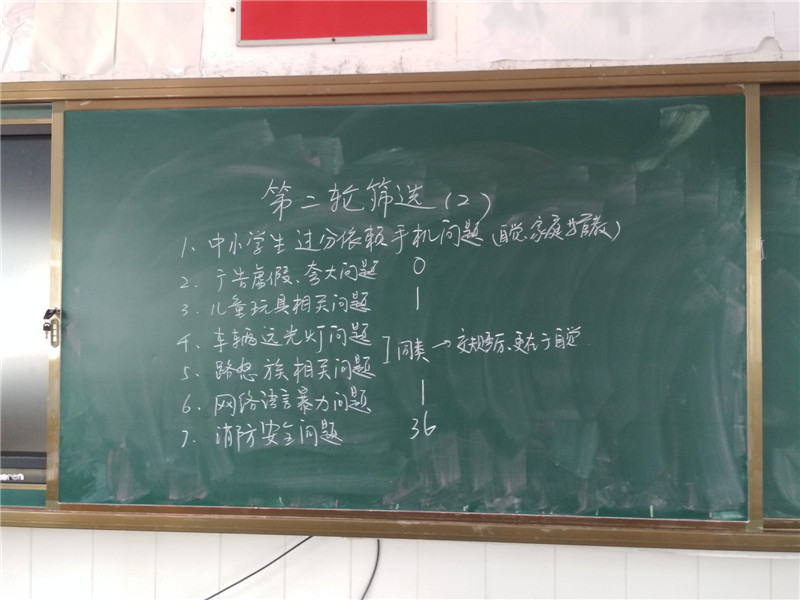 第二轮筛选(2)
1、中小学生过分依赖手机问题 (自觉、家庭
2、广告虚假、夸大问题 0
3、儿童玩具相关问题 1
4、车辆远光灯问题
5、路怒族相关问题
同类→交规 更在于自觉
6、网络语言暴力问题 1
7、消防安全问题 36